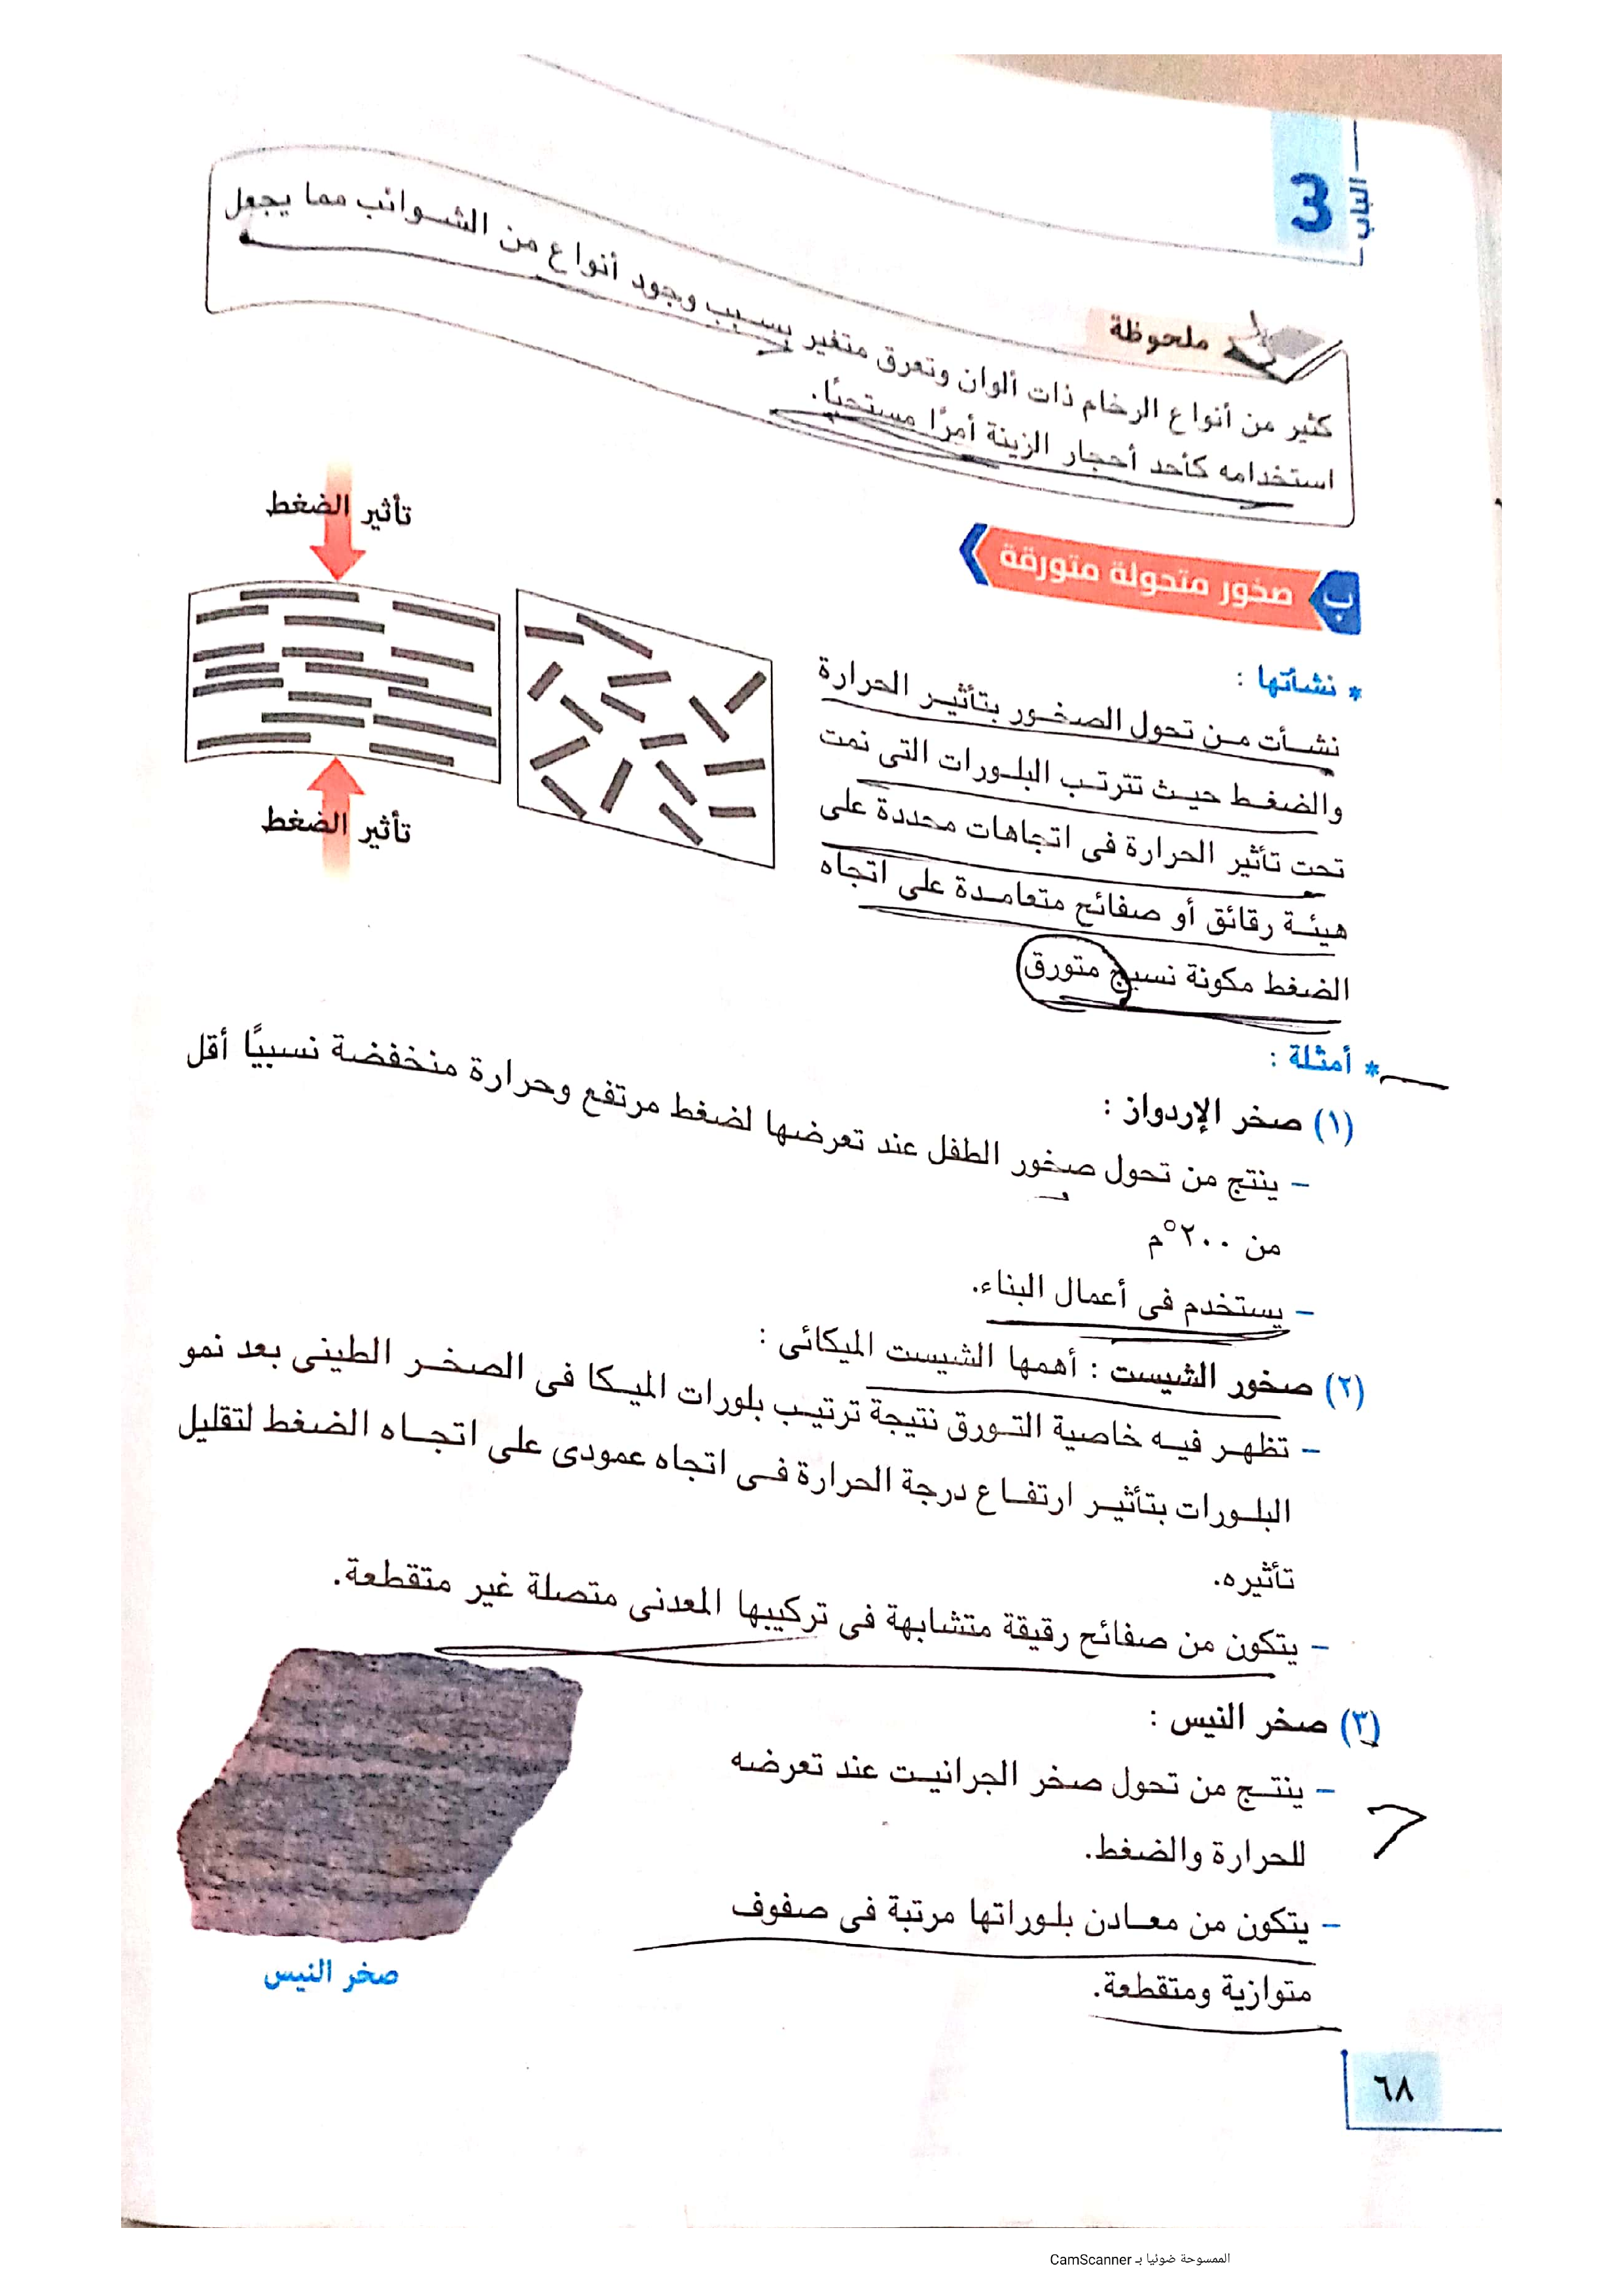 الباب
3
ملحوظة
كثير من أنواع الرخام ذات ألوان وتعرق متغير بسبب وجود أنواع من الشوائب مما يجعل
استخدامه كأحد أحجار الزينة أمرًا مستحبًا.
ب صخور متحولة متورقة
* نشأتها :
نشأت من تحول الصخور بتأثير الحرارة
والضغط حيث تترتب البلورات التى نمت
تحت تأثير الحرارة فى اتجاهات محددة على
هيئة رقائق أو صفائح متعامدة على اتجاه
الضغط مكونة نسيج متورق
تأثير الضغط
تأثير الضغط
* أمثلة :
(١) صخر الإردواز :
- ينتج من تحول صخور الطفل عند تعرضها لضغط مرتفع وحرارة منخفضة نسبيًا أقل
من ٢٠٠°م
- يستخدم فى أعمال البناء.
(٢) صخور الشيست : أهمها الشيست الميكائى :
- تظهر فيه خاصية التورق نتيجة ترتيب بلورات الميكا فى الصخر الطينى بعد نمو
البلورات بتأثير ارتفاع درجة الحرارة فى اتجاه عمودى على اتجاه الضغط لتقليل
تأثيره.
- يتكون من صفائح رقيقة متشابهة فى تركيبها المعدنى متصلة غير متقطعة.
(٣) صخر النيس :
- ينتج من تحول صخر الجرانيت عند تعرضه
للحرارة والضغط.
- يتكون من معادن بلوراتها مرتبة فى صفوف
متوازية ومتقطعة.
صخر النيس
٦٨
الممسوحة ضوئيا بـ CamScanner